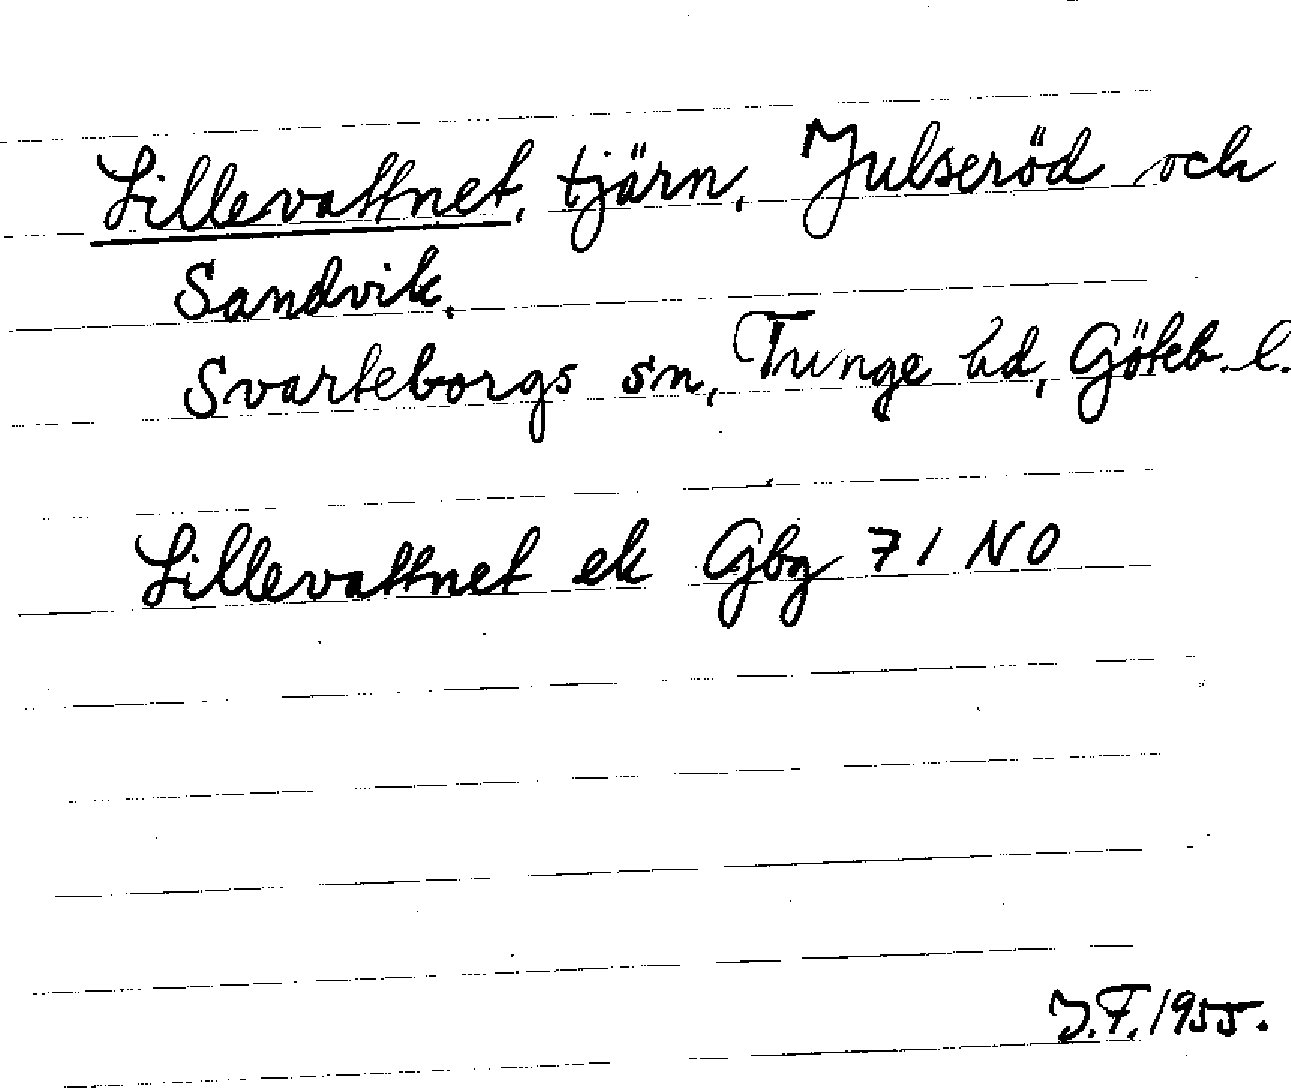 Lillevattnet, tjärn, Julseröd och
Sandvik.
Svarteborgs sn, Tunge hd, Göteb. l.
Lillevattnet ek Gbg 71 NO
J.F. 1955.